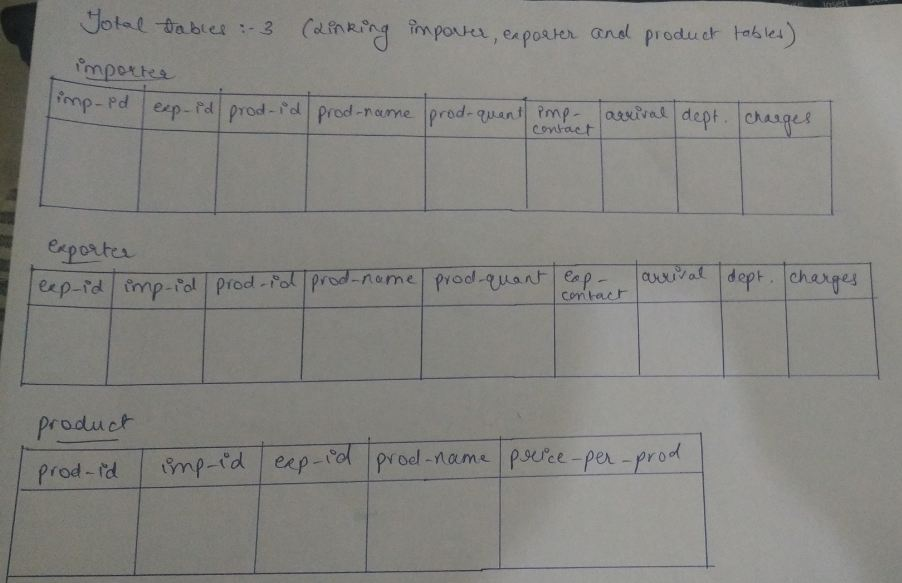 Total tables :- 3 (Linking importer, exporter and product tables)
importer
imp-id exp-id prod-id prod-name prod-quant imp-contact arrival dept. charges
exporter
exp-id imp-id prod-id prod-name prod-quant exp-contact arrival dept. charges
product
prod-id imp-id exp-id prod-name price-per-prod